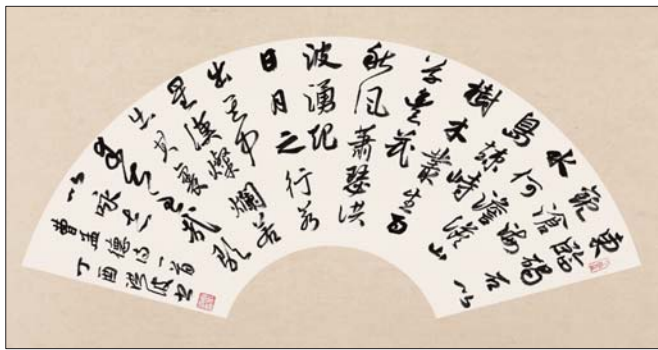 東臨碣石以
觀滄海
水何澹澹山
島竦峙
樹木叢生百
草豐茂
秋風蕭瑟洪
波湧起
日月之行若
出其中
星漢燦爛若
出其裏
幸甚至哉歌
以詠志
曹孟德詩一首
丁酉